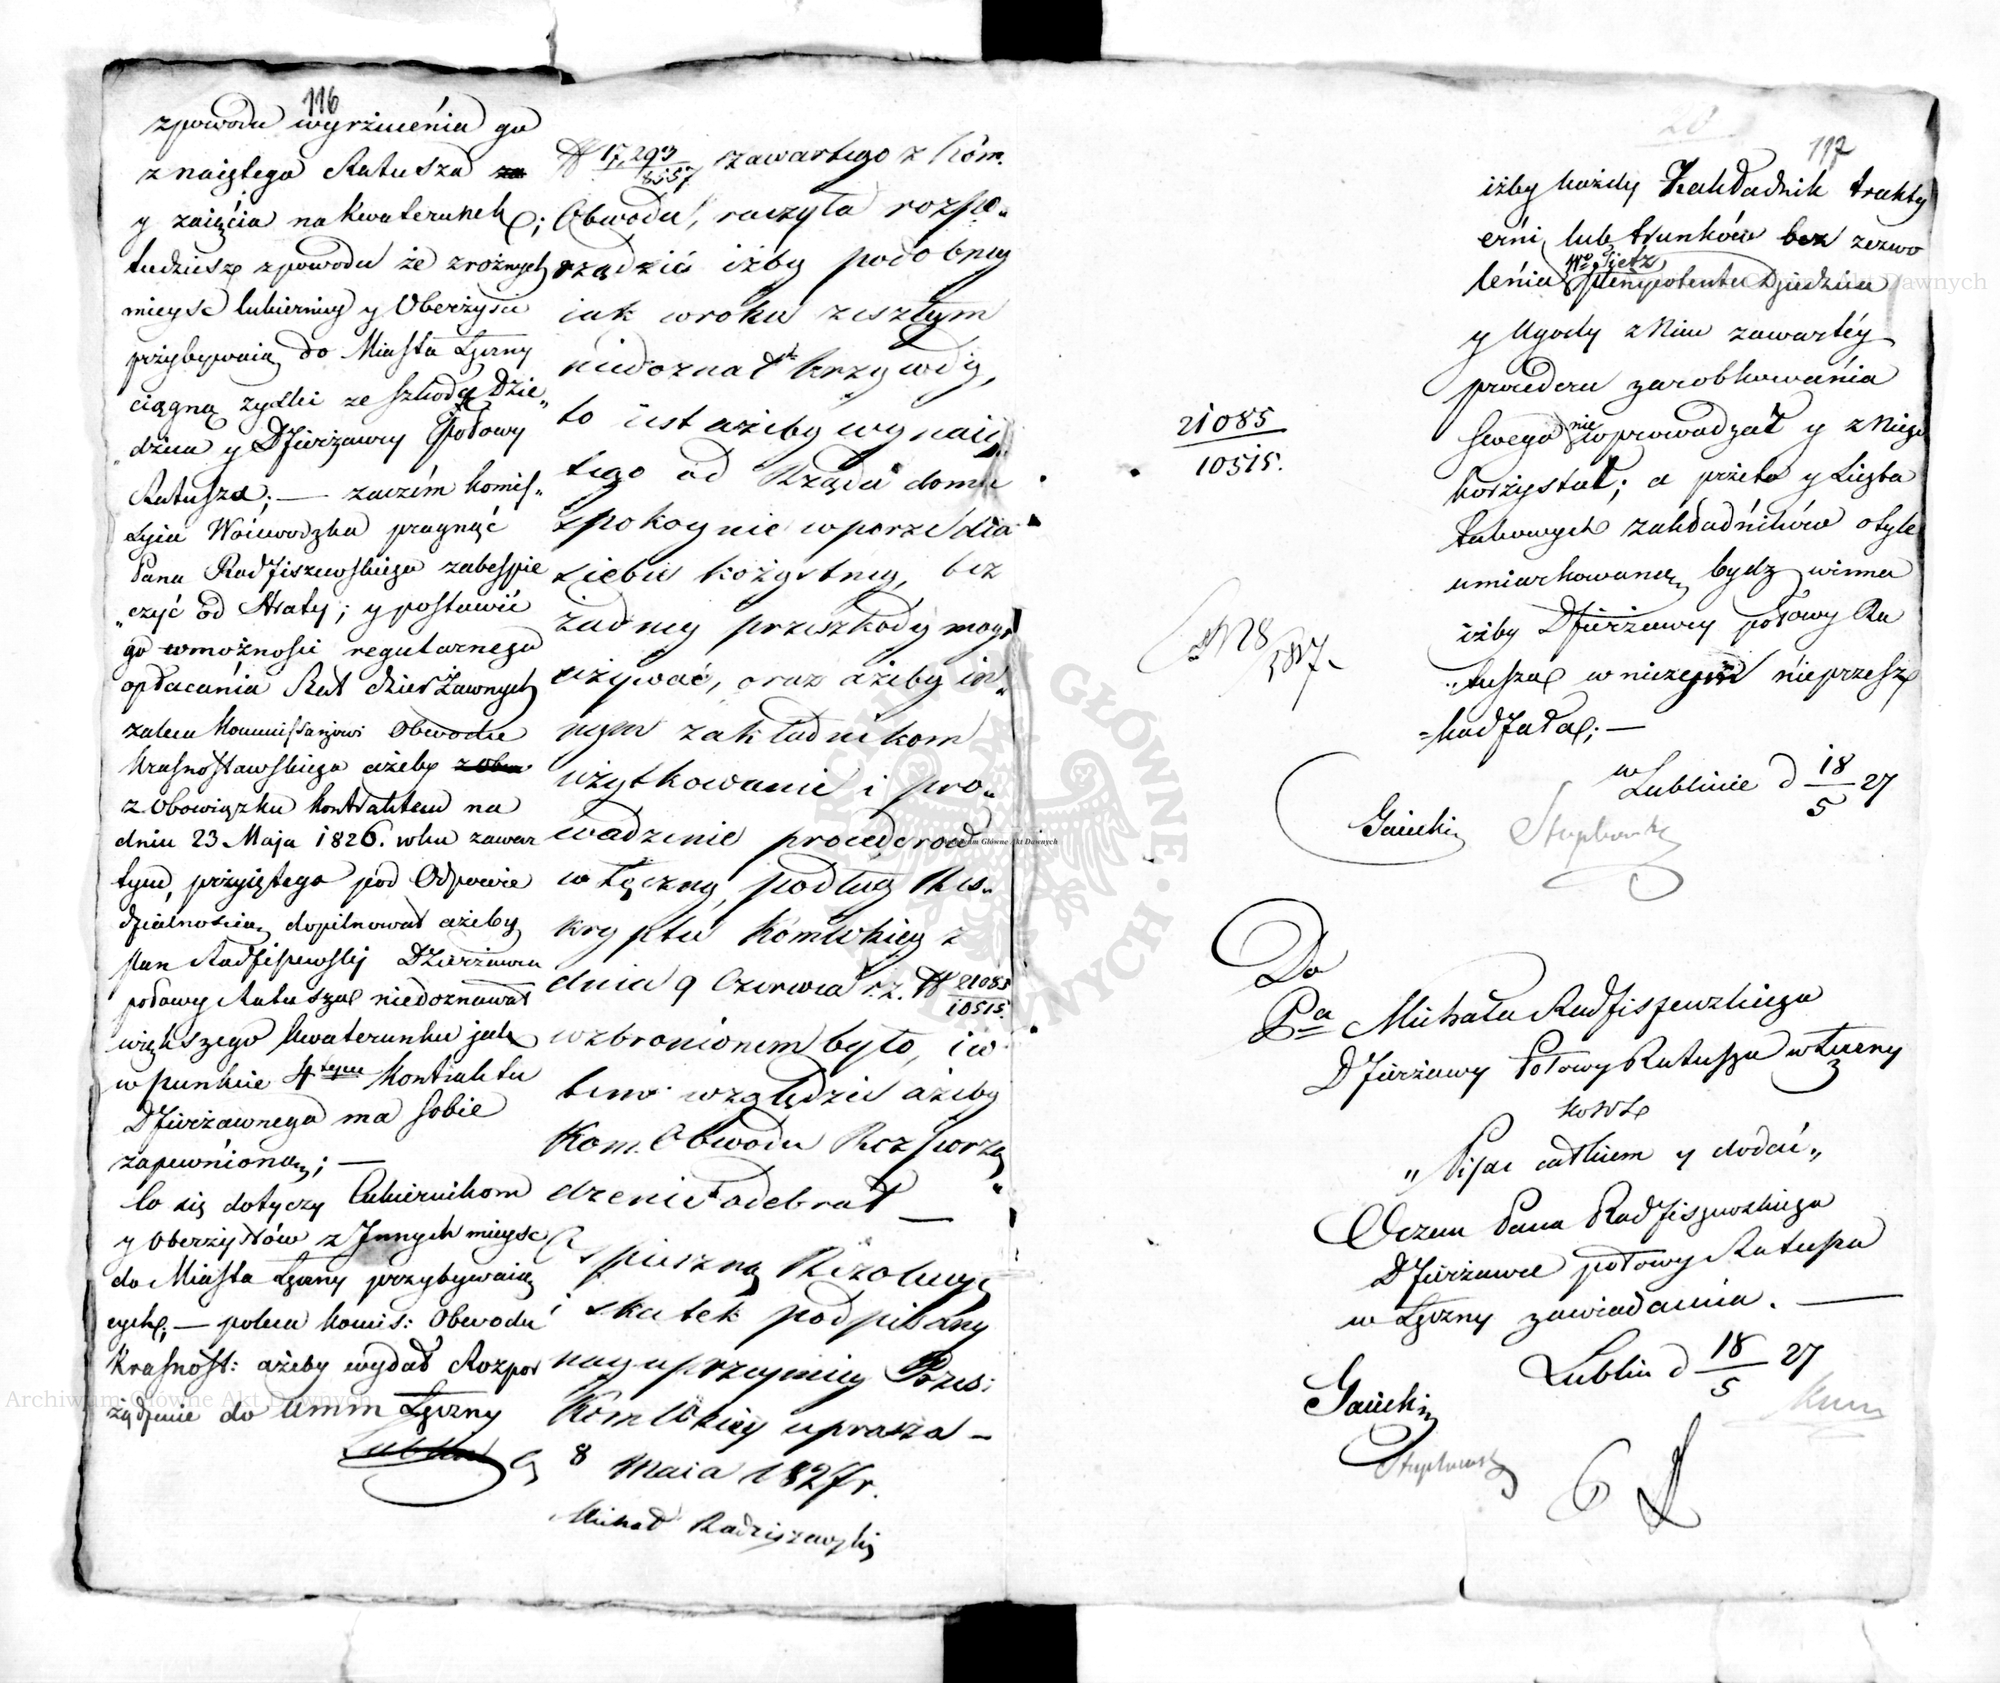 116
zpowodu wyrzucénia go
z naiętego Ratusza
y zaięcia na kwaterunek;
tudziesz zpowodu że zrożnych
mieysc cukierniey y Oberżyscu
przybywaią do Miasta Łęczny
ciągną zyski ze szkodą Dzie„
„dzica y Dzierżawcy Połowy
Ratusza; — zaczém komis„
syia Woiewodzka pragnąć
Pana Radziszewskiego zabespie
„czyć od straty; y postawić
go wmożności regularnego
opłacánia Rat dzierżawnych
zaleca Kommissarzowi Obwodu
Krasnostawskiego ażeby
z Obowiązku kontraktem na
dniu 23 Maja 1826. roku zawar
tym, przyiętego pod Odpowie
dzialnością dopilnował ażeby
Pan Radziszewski Dzierżawca
połowy Ratusza niedoznawał
większego kwaterunku jak
w punkcie 4tym Kontraktu
Dzierżawnego ma sobie
zapewnioną; —
Co się dotyczy Cukiernikom
y Oberzystów z Innych mieysc
do Miasta Łęczny przybywaią
cych; — poleca Komis: Obwodu
Krasnost: ażeby wydał Rozpor
ządzenie do Amm Łęczny
Lublin
N 17,293/8557 zawartego z Kóm.
Obwodu, raczyła rozpo„
rządzić iżby podobney
iak wroku zeszłym
niedoznał krzywdy,
to iest ażeby wynaię„
tego od Rządu domu
spokoynie wporze dla
siebie kożystney, bez
żadney przeszkody mógł
używać, oraz ażeby in„
nym zakładnikom
użytkowanie i pro„
wadzenie procederow
w Łęczny, podług Res„
kryptu KomWkiey z
dnia 9 Czerwca r.z. N 21085/10515.
wzbronionem było, i w
tem względzie ażeby
Kom. Obwodu Rozporzą„
dzenie odebrał —
O spieszną Rezolucyę
i skutek podpisany
nayuprzeymiey Prześ:
Kom Wkiey uprasza —
8 Maia 1827 r.
Michał Radziszewski
117
21085
10515.
iżby każdy Zakładnik trakty
erni, lub trunków bez zezwo
Wo Pietz
lénia Plenipotenta Dziedzica
y Ugody z Nim zawartéy
procederu zarobkowánia
swego nie wprowadzał y z niego
korzystał; a przeto y Liczba
takowych zakładników otyle
umiarkowaną bydz winna
iżby Dzierżawcy połowy Ra
„tusza w niczem nieprzesz
=kadzała; —
w Lublinie d 18/5 27
Gaiecki
Do
Pa Michała Radziszewskiego
Dzierżawcy Połowy Ratusza w Łęczny
„ Pisac całkiem y dodać „
Oczem Pana Radziszewskiego
Dzierżawcę połowy Ratusza
w Łęczny zawiadamia. —
Lublin d 18/5 27
Gaiecki